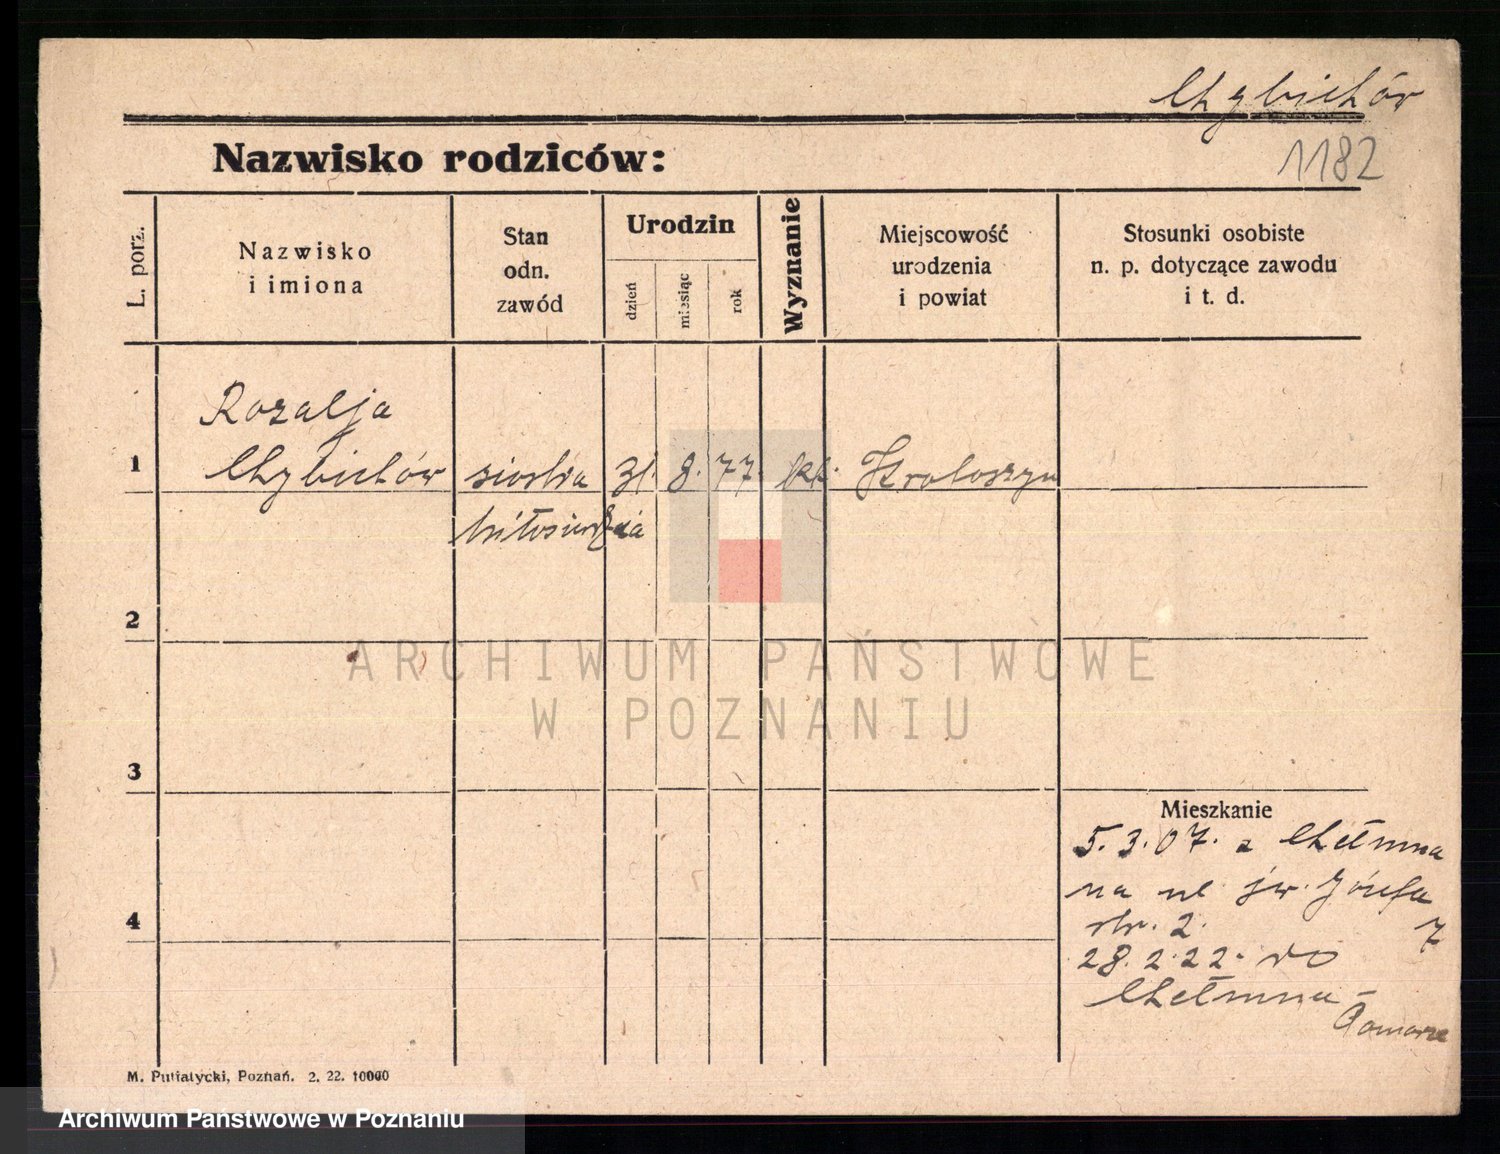 Chybichór
1182
Nazwisko rodziców:
L. porz.
Nazwisko
i imiona
Stan
odn.
zawód
Urodzin
dzień
miesiąc
rok
Wyznanie
Miejscowość
urodzenia
i powiat
Stosunki osobiste
n. p. dotyczące zawodu
i t. d.
Rozalja
1 Chybichór siostra 31. 8. 77. kt. Krotoszyn
miłosierdzia
2
ARCHIWUM PAŃSTWOWE
W POZNANIU
3
Mieszkanie
5.3.07. z Chełmna
na ul św. Józefa
str. 2. 7
4
28.2.22. do
Chełmna -
Pomorze
M. Putiatycki, Poznań. 2. 22. 10000
Archiwum Państwowe w Poznaniu